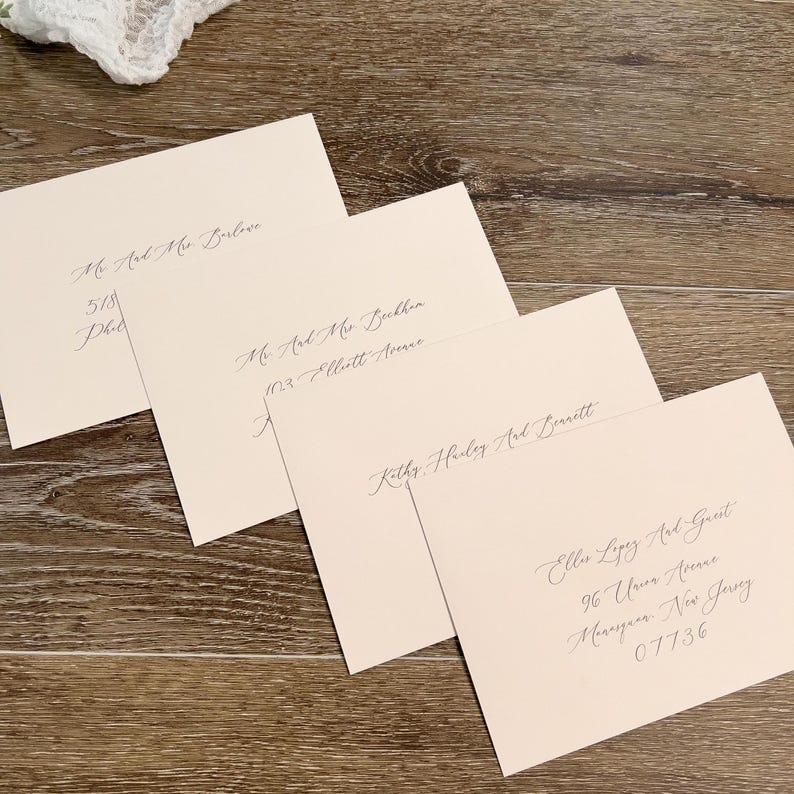 Mr. And Mrs. Barlowe
518
Phil
Mr. And Mrs. Beckham
103 Elliott Avenue
Kathy, Huxley And Bennett
Ellis Lopez And Guest
96 Union Avenue
Manasquan, New Jersey
07736